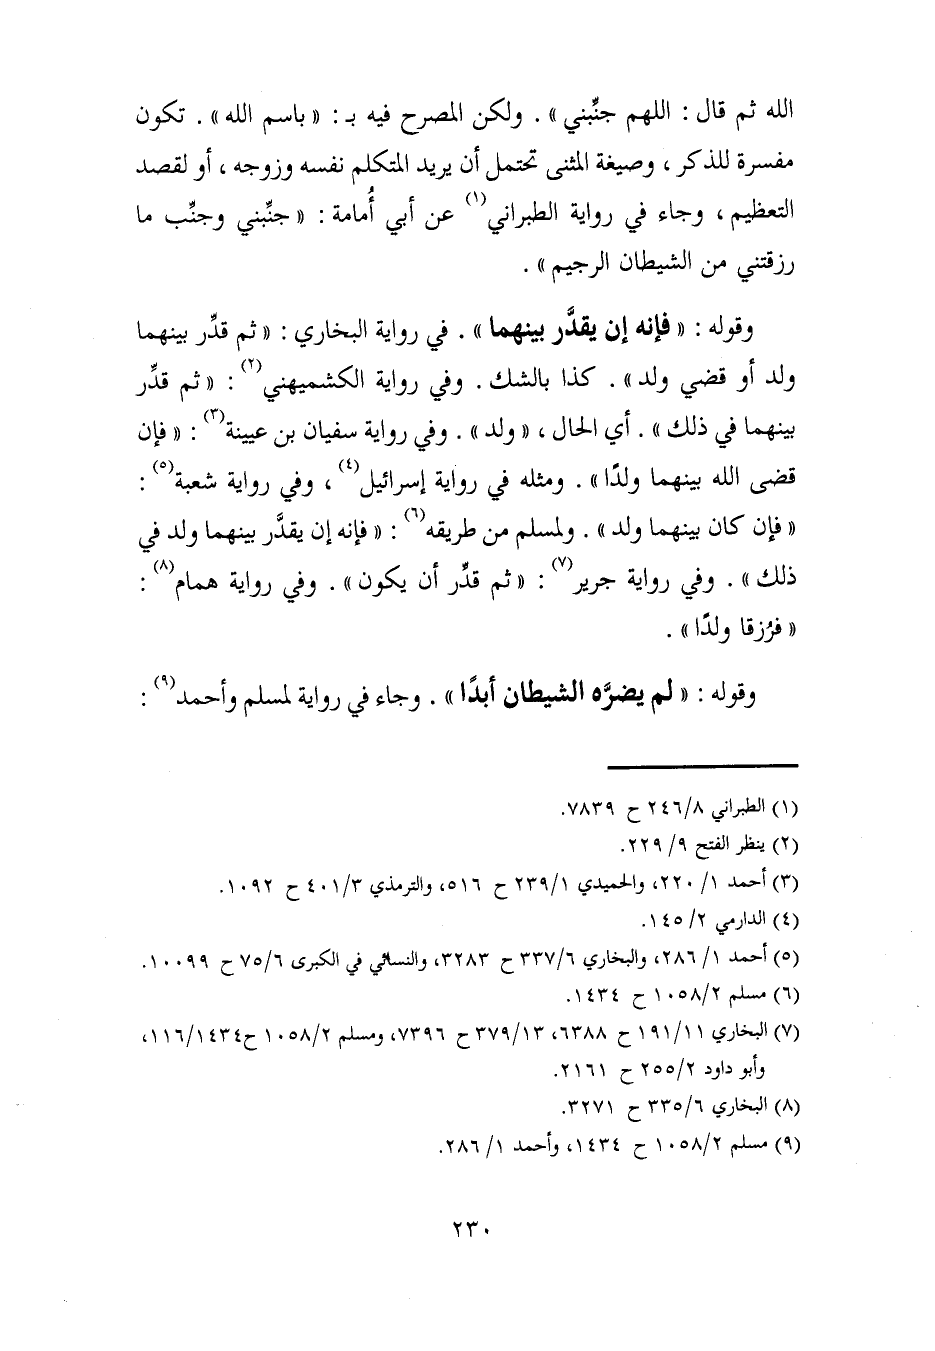 الله ثم قال : اللهم جنِّبني » . ولكن المصرح فيه بـ : « باسم الله » . تكون
مفسرة للذكر ، وصيغة المثنى تحتمل أن يريد المتكلم نفسه وزوجه ، أو لقصد
التعظيم ، وجاء في رواية الطبراني(١) عن أبي أُمامة : « جنِّبني وجنِّب ما
رزقتني من الشيطان الرجيم » .
وقوله : « فإنه إن يقدَّر بينهما » . في رواية البخاري : « ثم قدِّر بينهما
ولد أو قضي ولد » . كذا بالشك . وفي رواية الكشميهني(٢) : « ثم قدِّر
بينهما في ذلك » . أي الحال ، « ولد » . وفي رواية سفيان بن عيينة(٣) : « فإن
قضى الله بينهما ولدًا » . ومثله في رواية إسرائيل(٤) ، وفي رواية شعبة(٥) :
« فإن كان بينهما ولد » . ولمسلم من طريقه(٦) : « فإنه إن يقدَّر بينهما ولد في
ذلك » . وفي رواية جرير(٧) : « ثم قدِّر أن يكون » . وفي رواية همام(٨) :
« فرُزقا ولدًا » .
وقوله : « لم يضرَّه الشيطان أبدًا » . وجاء في رواية لمسلم وأحمد(٩) :
(١) الطبراني ٢٤٦/٨ ح ٧٨٣٩.
(٢) ينظر الفتح ٩/ ٢٢٩.
(٣) أحمد ١/ ٢٢٠، والحميدي ٢٣٩/١ ح ٥١٦، والترمذي ٤٠١/٣ ح ١٠٩٢.
(٤) الدارمي ٢/ ١٤٥.
(٥) أحمد ١/ ٢٨٦، والبخاري ٣٣٧/٦ ح ٣٢٨٣، والنسائي في الكبرى ٧٥/٦ ح ١٠٠٩٩.
(٦) مسلم ١٠٥٨/٢ ح ١٤٣٤.
(٧) البخاري ١٩١/١١ ح ٦٣٨٨، ٣٧٩/١٣ ح ٧٣٩٦، ومسلم ١٠٥٨/٢ ح١١٦/١٤٣٤،
وأبو داود ٢٥٥/٢ ح ٢١٦١.
(٨) البخاري ٣٣٥/٦ ح ٣٢٧١.
(٩) مسلم ١٠٥٨/٢ ح ١٤٣٤، وأحمد ١/ ٢٨٦.
٢٣٠